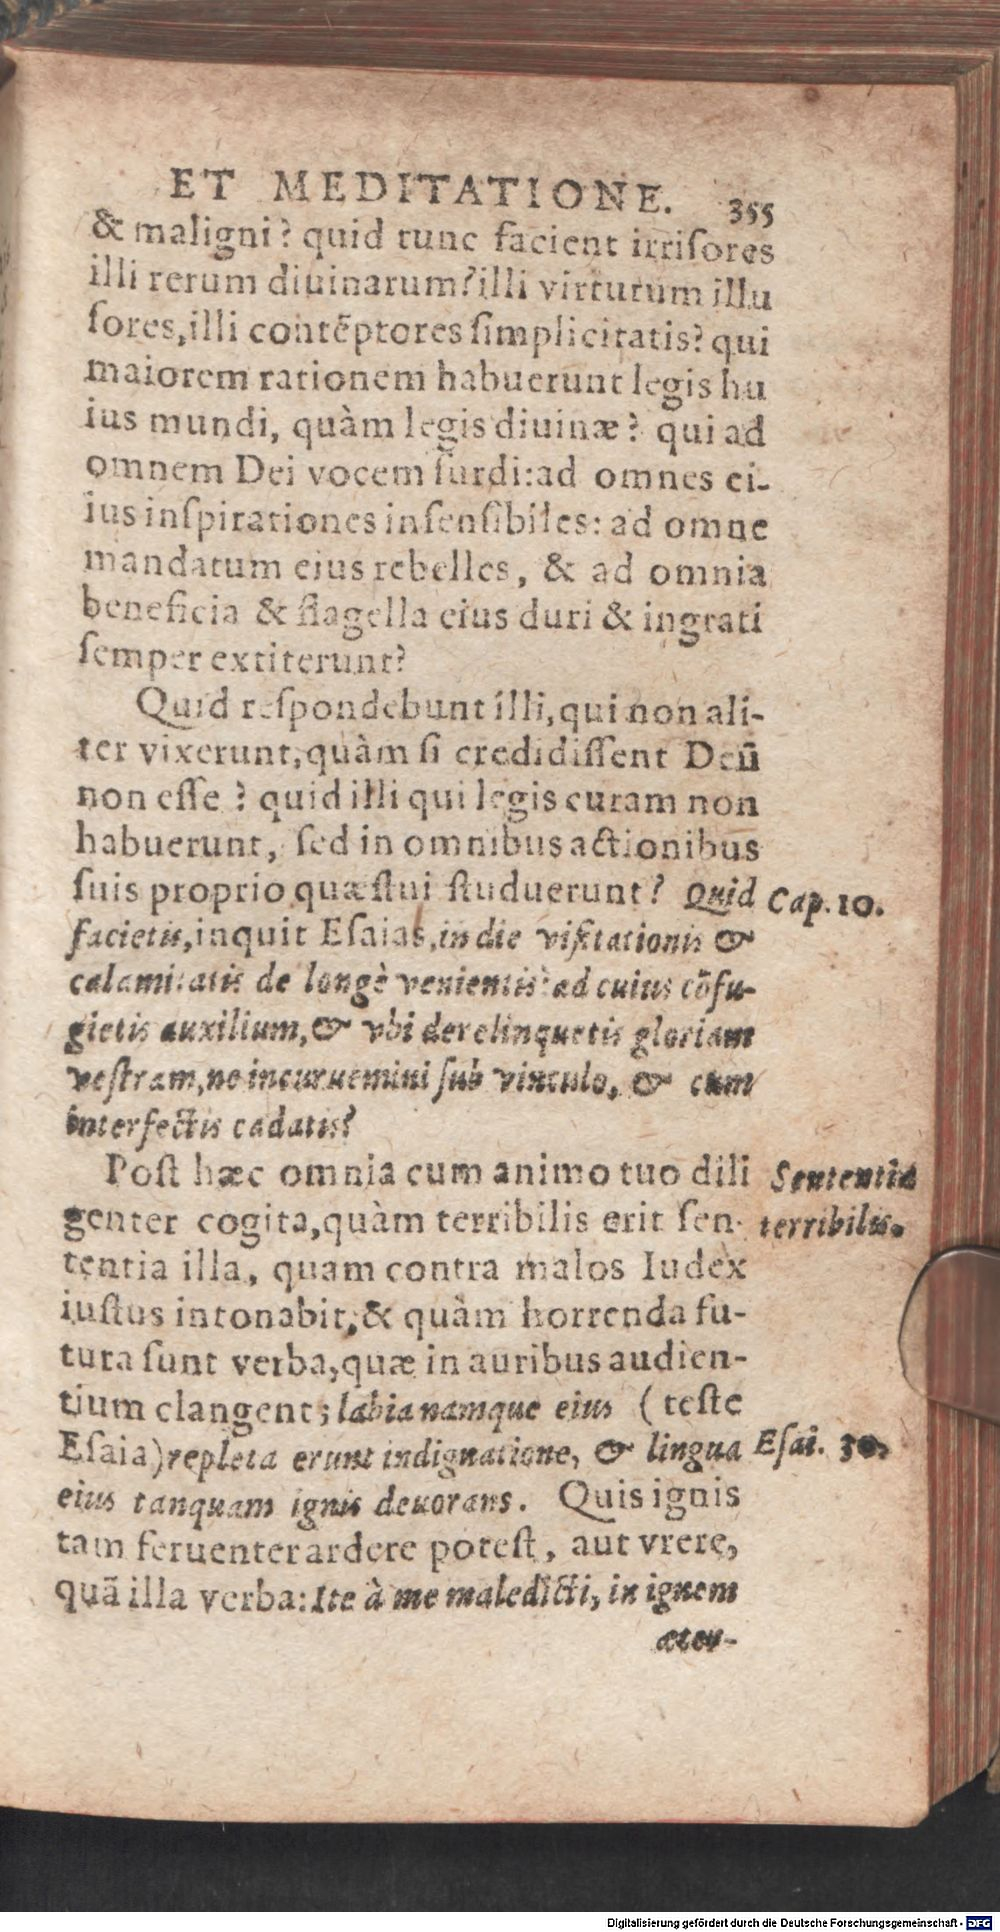 ET MEDITATIONE. 355
& maligni? quid tunc facient irriſores
illi rerum diuinarum? illi virtutum illu
ſores, illi contẽptores ſimplicitatis? qui
maiorem rationem habuerunt legis hu
ius mundi, quàm legis diuinæ? qui ad
omnem Dei vocem ſurdi: ad omnes ei-
ius inſpirationes inſenſibiles: ad omne
mandatum eius rebelles, & ad omnia
beneficia & flagella eius duri & ingrati
ſemper extiterunt?
Quid reſpondebunt illi, qui non ali-
ter vixerunt, quàm ſi credidiſſent Deũ
non eſſe? quid illi qui legis curam non
habuerunt, ſed in omnibus actionibus
ſuis proprio quæſtui ſtuduerunt? Quid Cap. 10.
facietis, inquit Eſaias, in die viſitationis &
calamitatis de longè venientis? ad cuius cõfu-
gietis auxilium, & vbi derelinquetis gloriam
veſtram, ne incuruemini ſub vinculo, & cum
interfectis cadatis?
Poſt hæc omnia cum animo tuo dili Sententia
genter cogita, quàm terribilis erit ſen- terribilis.
tentia illa, quam contra malos Iudex
iuſtus intonabit, & quàm horrenda fu-
tura ſunt verba, quæ in auribus audien-
tium clangent; labia namque eius (teſte
Eſaia) repleta erunt indignatione, & lingua Eſai. 30.
eius tanquam ignis deuorans. Quis ignis
tam feruenter ardere poteſt, aut vrere,
quã illa verba: Ite à me maledicti, in ignem
æter-
Digitalisierung gefördert durch die Deutsche Forschungsgemeinschaft - DFG